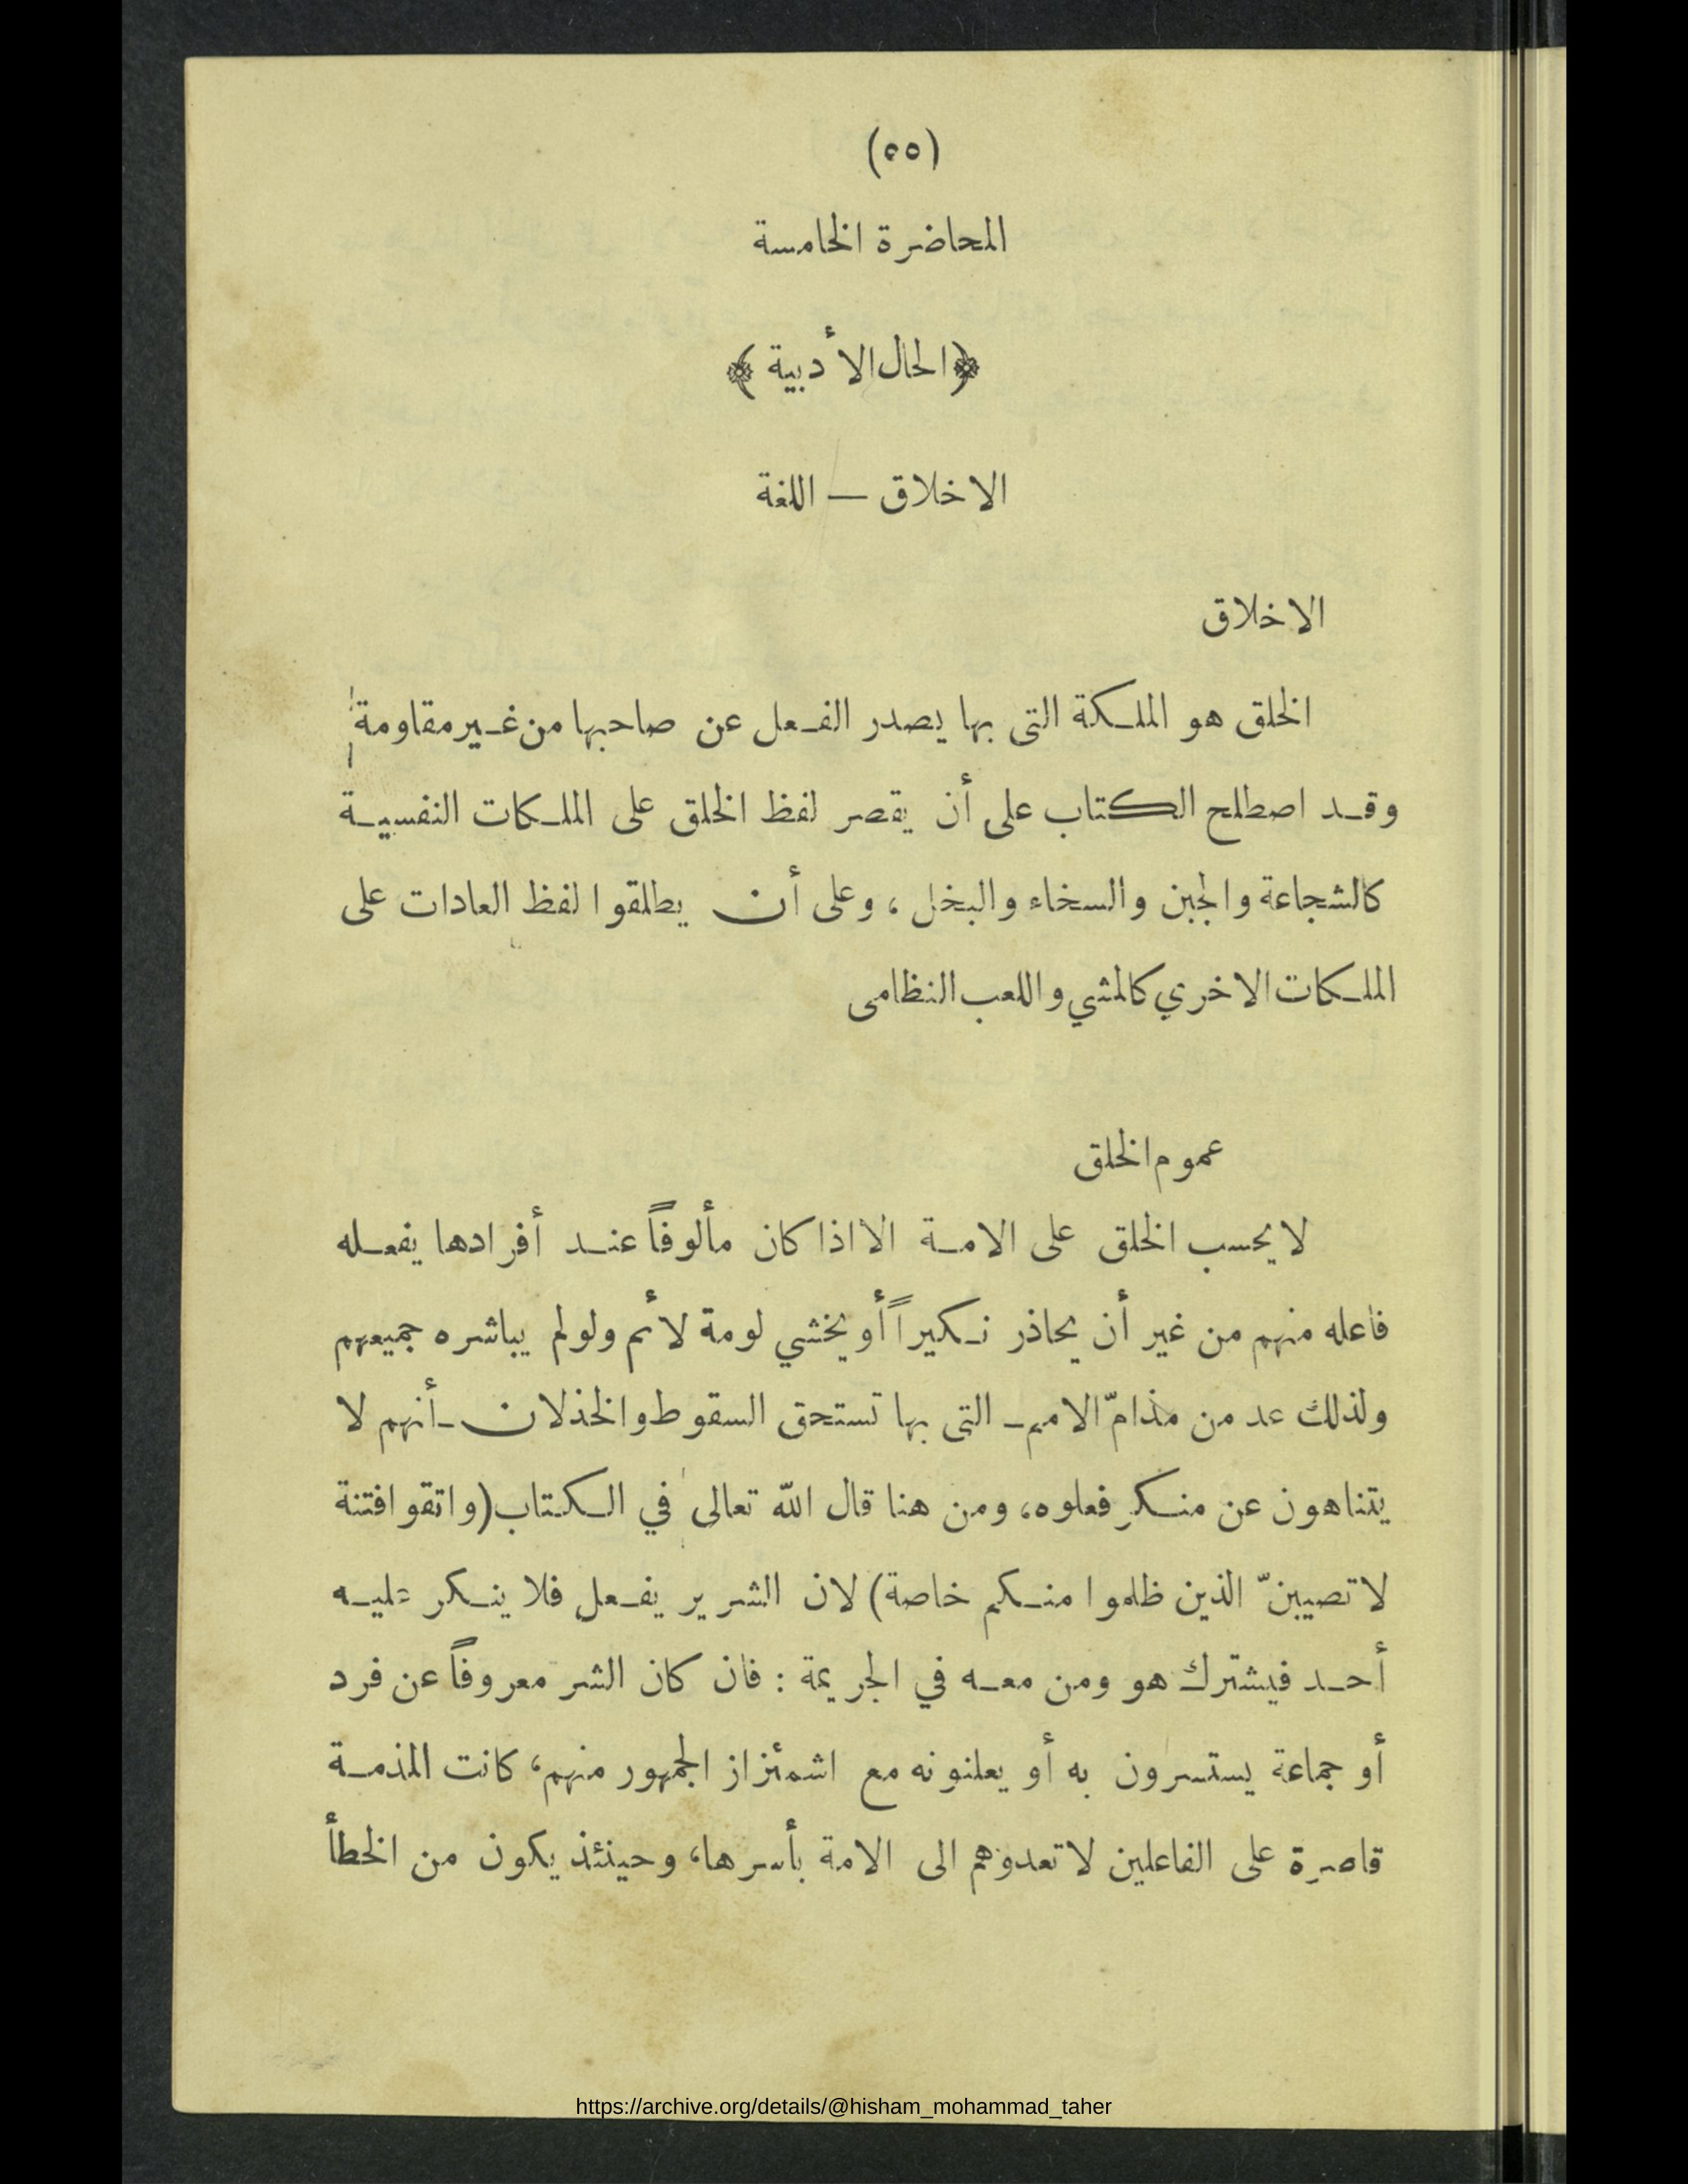 (٥٥)
المحاضرة الخامسة
﴿الحال الأدبية﴾
الاخلاق — اللغة
الاخلاق
الخلق هو الملكة التى بها يصدر الفعل عن صاحبها من غير مقاومة
وقد اصطلح الكتاب على أن يقصر لفظ الخلق على الملكات النفسية
كالشجاعة والجبن والسخاء والبخل ، وعلى أن يطلقوا لفظ العادات على
الملكات الاخري كالمشي واللعب النظامى
عموم الخلق
لا يحسب الخلق على الامة الا اذا كان مألوفاً عند أفرادها يفعله
فاعله منهم من غير أن يحاذر نكيراً أو يخشي لومة لأئم ولو لم يباشره جميعهم
ولذلك عد من مذامّ الامم ـ التى بها تستحق السقوط والخذلان ـ أنهم لا
يتناهون عن منكر فعلوه، ومن هنا قال الله تعالى في الكتاب (واتقوا فتنة
لا تصيبنّ الذين ظلموا منكم خاصة) لان الشرير يفعل فلا ينكر عليه
أحد فيشترك هو ومن معه في الجريمة : فان كان الشر معروفاً عن فرد
أو جماعة يستسرون به أو يعلنونه مع اشمئزاز الجمهور منهم، كانت المذمة
قاصرة على الفاعلين لا تعدوهم الى الامة بأسرها، وحينئذ يكون من الخطأ
https://archive.org/details/@hisham_mohammad_taher